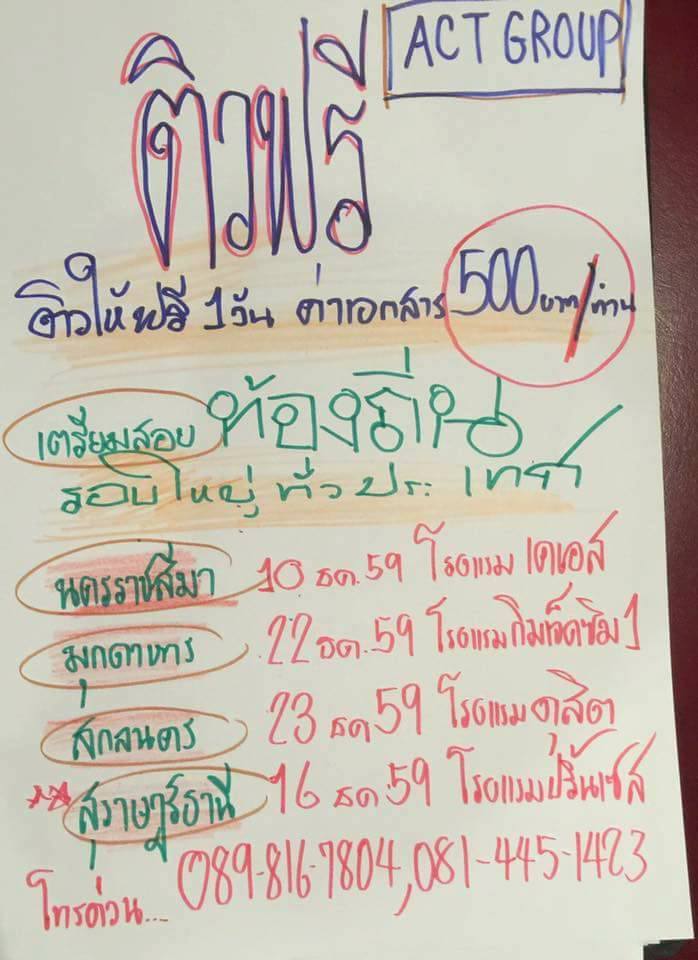 ACT GROUP
ติวฟรี
ติวให้ฟรี 1 วัน ค่าเอกสาร 500 บาท/ท่าน
เตรียมสอบ ท้องถิ่น
รอบใหญ่ ทั่วประเทศ
นครราชสีมา 10 ธค.59 โรงแรม เคเอส
มุกดาหาร 22 ธค.59 โรงแรมกิมเจ็คซิม 1
สกลนคร 23 ธค 59 โรงแรมดุสิต
สุราษฎร์ธานี 16 ธค.59 โรงแรมปริ้นเซส
โทรด่วน... 089-816-7804, 081-445-1423